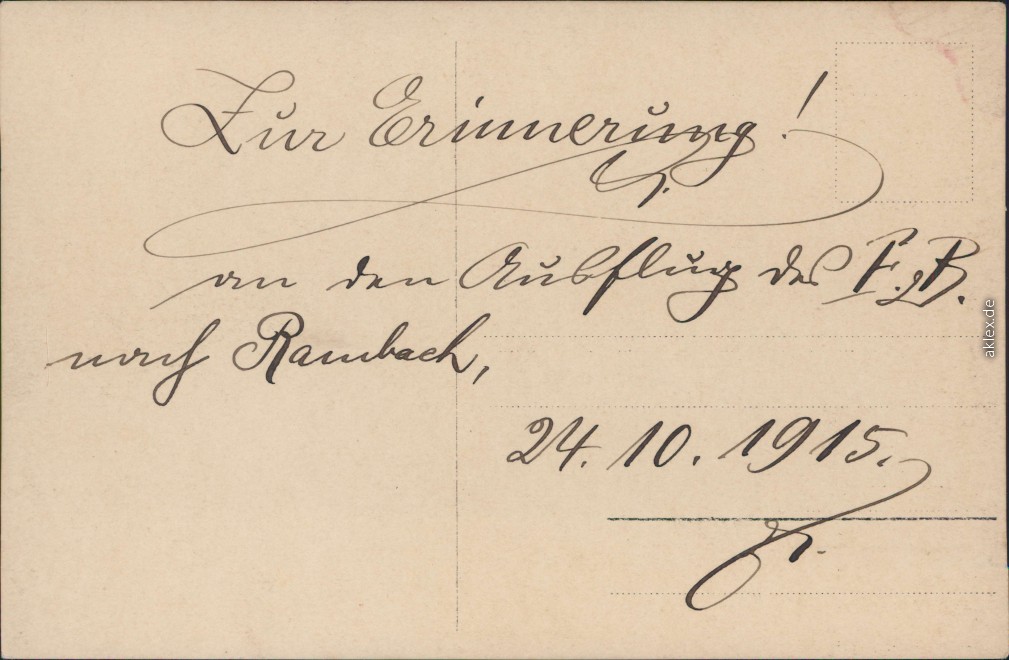 Zur Erinnerung!
an den Ausflug des F.B.
nach Rambach,
24. 10. 1915.
aklex.de